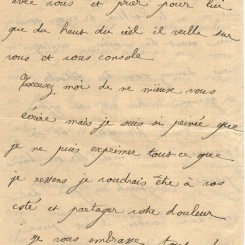 avec vous et prier pour lui
que du haut du ciel il veille sur
vous et vous console.
Excusez moi de ne mieux vous
écrire mais je suis si peinée que
je ne puis exprimer tout ce que
je ressens je voudrais être à vos
coté et partager votre douleur
je vous embrasse